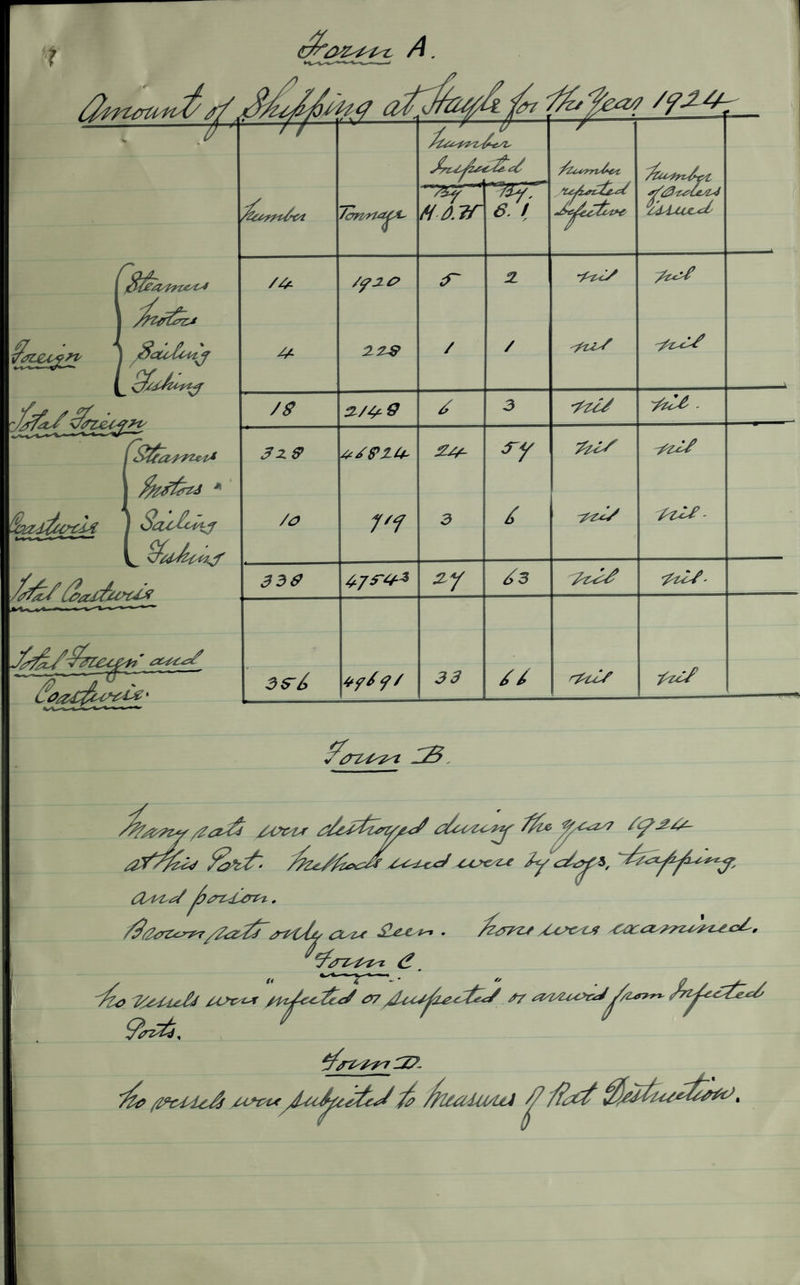 Form A.
Amount of Shipping at Hayle for The Year 1924
Number Tonnage Number Inspected Number reported Defective Number of Orders issued
By M.O.H By S.I
Foreign
Steamers 14 1920 5 2 nil Nil
Motors
Sailing 4 229 1 1 nil nil
Fishing
Total Foreign 18 2149 6 3 nil nil.
Coastwise
Steamers 328 46824 24 57 Nil nil
Motors *
Sailing 10 719 3 6 nil nil.
Fishing
Total Coastwise 338 47543 27 63 nil nil.
Total Foreign and Coastwise. 356 49691 33 66 nil nil
Form B.
Many rats were destroyed during the year 1924
at this Port. Methods used were by dogs, trapping,
and poison.
Brown rats only are seen. None were examined.
Form C.
No Vessels were "infected" or "suspected" or arrived from Infected
Ports.
Form D.
No vessels were subjected to Measures of Rat Destruction.